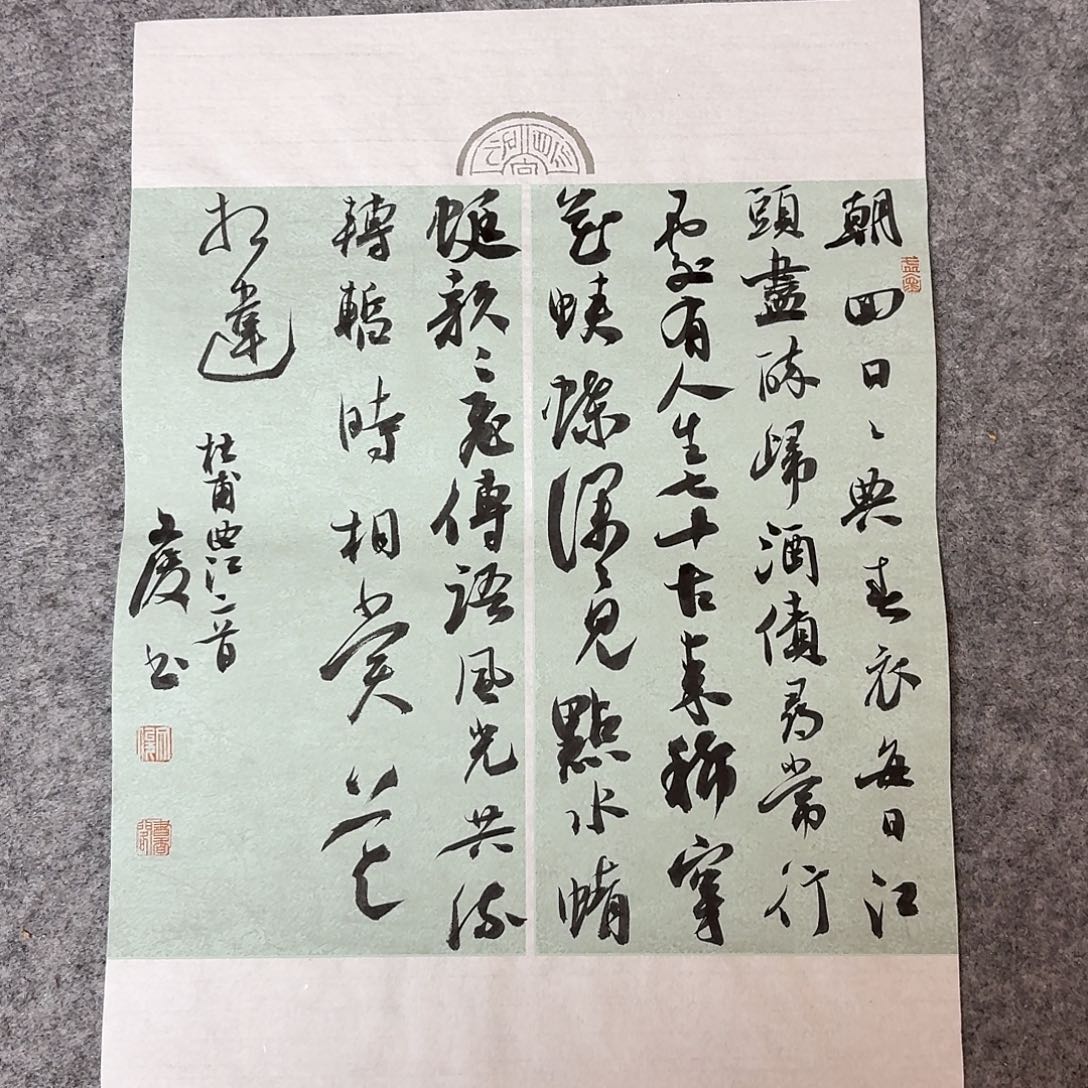 朝回日〻典春衣每日江
頭盡醉歸酒債尋常行
處〻有人生七十古來稀穿
花蛺蝶深〻見點水蜻
蜓款〻飛傳語風光共流
轉暫時相賞莫
相違
杜甫曲江二首
书